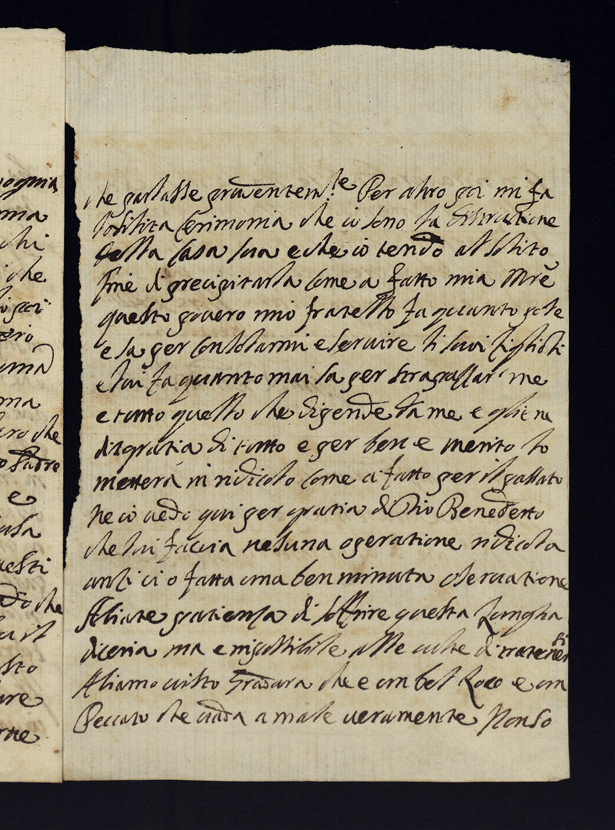 che parlasse graventem.te Per altro poi mi fa
solita Cerimonia che io sono la distrutione
della Casa sua e che io tendo al solito
fine di precipitarla come a fatto mia Mrē
questo povero mio fratello fa quanto pole
e sa per Consolarmi e servire li suoi
e lui fa quanto mai sa per strapassar me
e tutto quello che dipende da me e
disgratia di tutto e per bene e merito lo
metterà in ridicolo come a fatto per il passato
ne io vedo qui per gratia di Dio Benedetto
che lui faccia nesuna operatione ridicola
anzi ci o fatta una ben minuta oservatione
Abiate patienza di soffrire questa longha
diceria ma e inpossibile alle volte di
Abiamo visto Gradara che e un bel loco e un
Peccato che vada a male veramente Non so
ogniu
ma
chi
che
poi
ma
ro che
Padre
e
casa
uesti
che
il
sto
are
rne